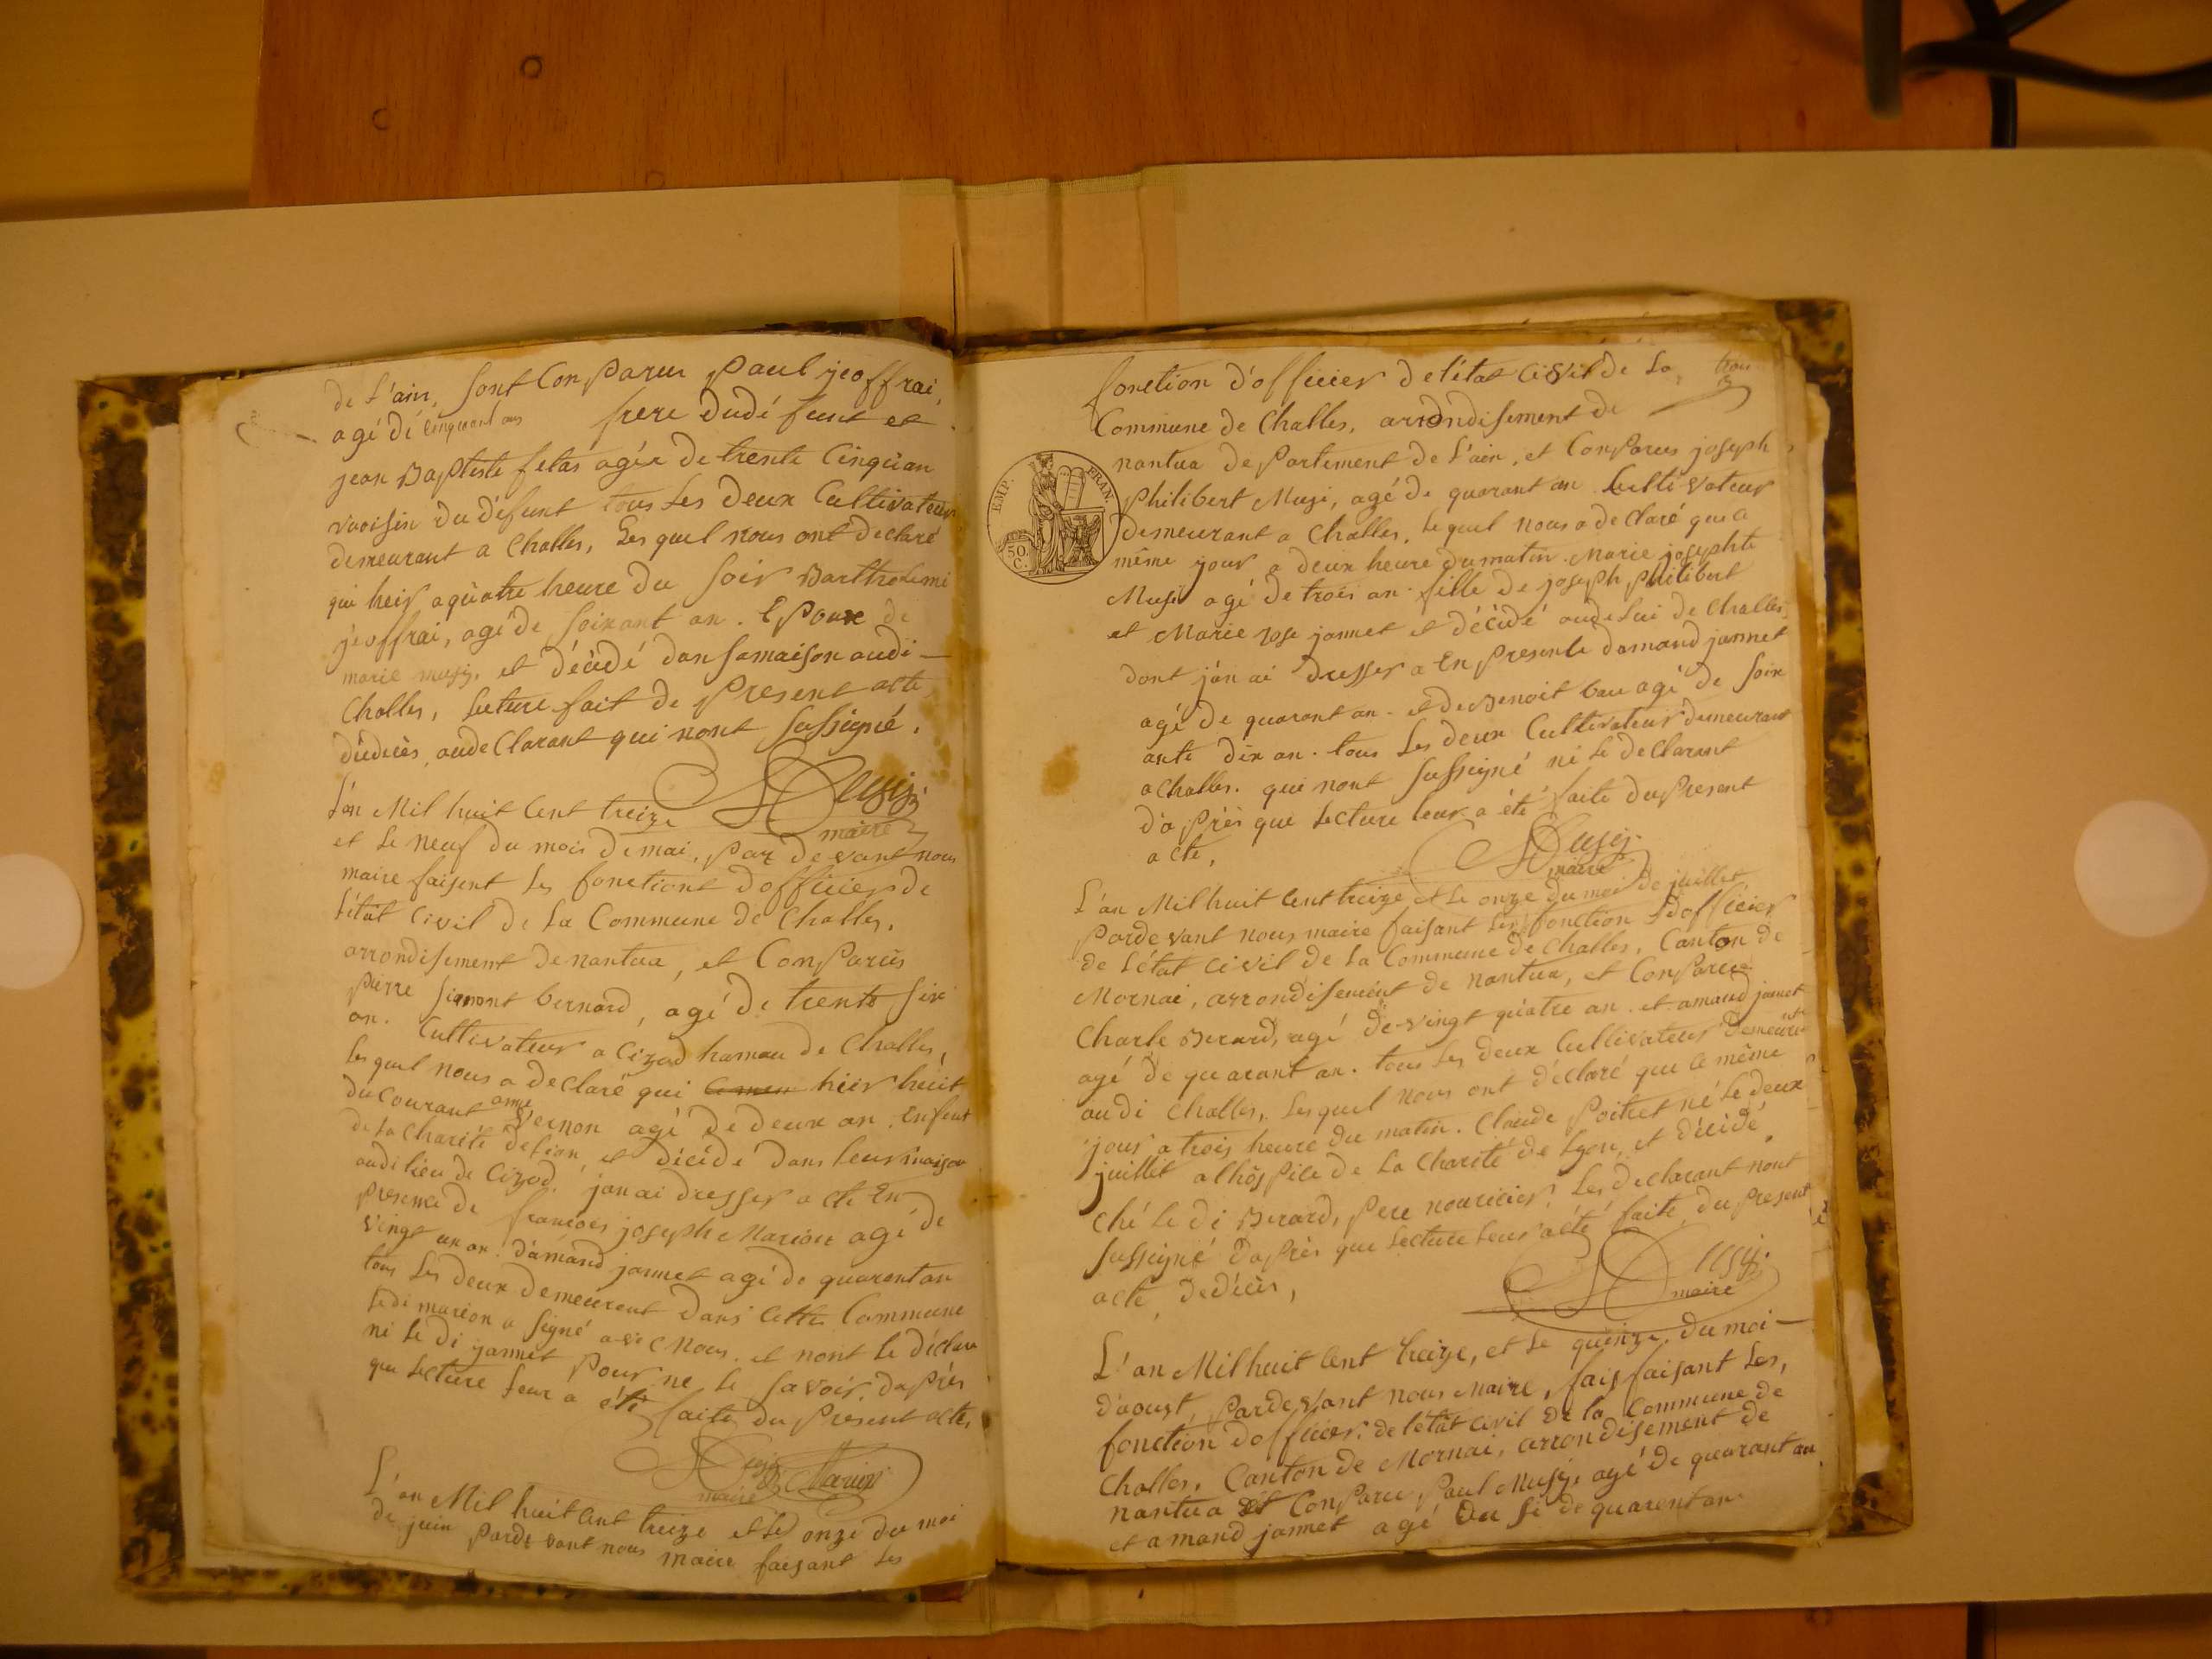 de L'ain, sont Conparus paul jeoffrai,
agé de Cinquant ans frere dudé funt et
jean Baptiste fetas agée de trente Cinquan
vaoisin du défunt tous Les deux Cultivateur
demeurant a Challes, Les quel nous ont declaré
qui heir a quatre heure du soir Barthelemi
jeoffrai, agé de soixant an. Epoux de
marie musy, et décédé dan sa maison audi
Challes, Lecture fait de present acte
dédécès, au de Clarant qui nont sussigné.
Musy
maire
L'an Mil huit Cent treize
et Le neuf du mois de mai, par devant nous
maire faisent Les fonctiont d'officier de
L'état Civil de La Commune de Challes,
arrondisement de nantua, et Conparus
pierre simont bernard, agé de trente six
an. Cultivateur a Cizod hamau de Challes,
Les quel nous a declaré qui hier huit
du Courant Vernon agé de deux an. Enfent
de La Charité de Lion, et décédé dans Leur maison
audi Lieu de Cizod, jan ai dresser acte En
presence de françois joseph Marion agé de
vingt un an. d'amand jannet agé de quarent an
tous Les deux demeurent dans Cette Commune
Ledi marion a signé avec nous, et nont Le déclara
ni Le di jannet pour ne Le savoir, daprès
que Lecture Leur a été faite du present acte,
Musy Marion
maire
L'an Mil huit Cent treize et Le onze du moi
de juin parde vant nous maire faisant Les
trois
3
fonction d'officier de L'état Civil de La
Commune de Challes, arrondisement de
nantua departement de L'ain, et Conparus joseph
EMP. FRAN.
50.
C.
philibert Musi, agé de quarant an Cultivateur
demeurant a Challes, Le quel nous a declaré que Ce
même jour a deux heure du matin. Marie josephte
Musi agé de trois an. fille de joseph philibert
et Marie rose jannet et décédé audi Lui de Challes,
dont j'an ai dresser a En presente damand jannet
agé de quarant an. et de Benoit bau agé de soix
ante dix an. tous Les deux Cultivateur demeurant
a Challes. qui nont sussigné ni Le declarant
d'a près que Lecture leur a été faite du present
acte,
Musy
maire
L'an Mil huit Cent treize et Le onze du moi de juillet
parde vant nous maire faisant Les fonction d'officier
de L'état Civil de La Commune de Challes, Canton de
Mornai, arrondisement de nantua, et Conparu
Charle Berard, agé de vingt quatre an. et amand jannet
agé de quarant an. tous Les deux Cultivateur demeurt
audi Challes, Les quel nous ont déclaré que Ce même
jour a trois heure du matin. Claude poitret né Le deux
juillet a L'hospice de La Charité de Lyon, et décédé,
Ché Le di Berard, pere nouricier. Les declarant nont
sussigné daprès que Lecture Leur a été faite, du present
acte, dedécès,
Musy
maire
L'an Mil huit Cent treize, et Le quinze, du moi
d'aoust parde vant nous Maire, fais faisant Les,
fonction d'officier de L'état Civil de La Commune de
Challes, Canton de Mornai, arrondisement de
nantua et Conparu paul Musy, agé de quarant an
et amand jannet agé au si de quarent an